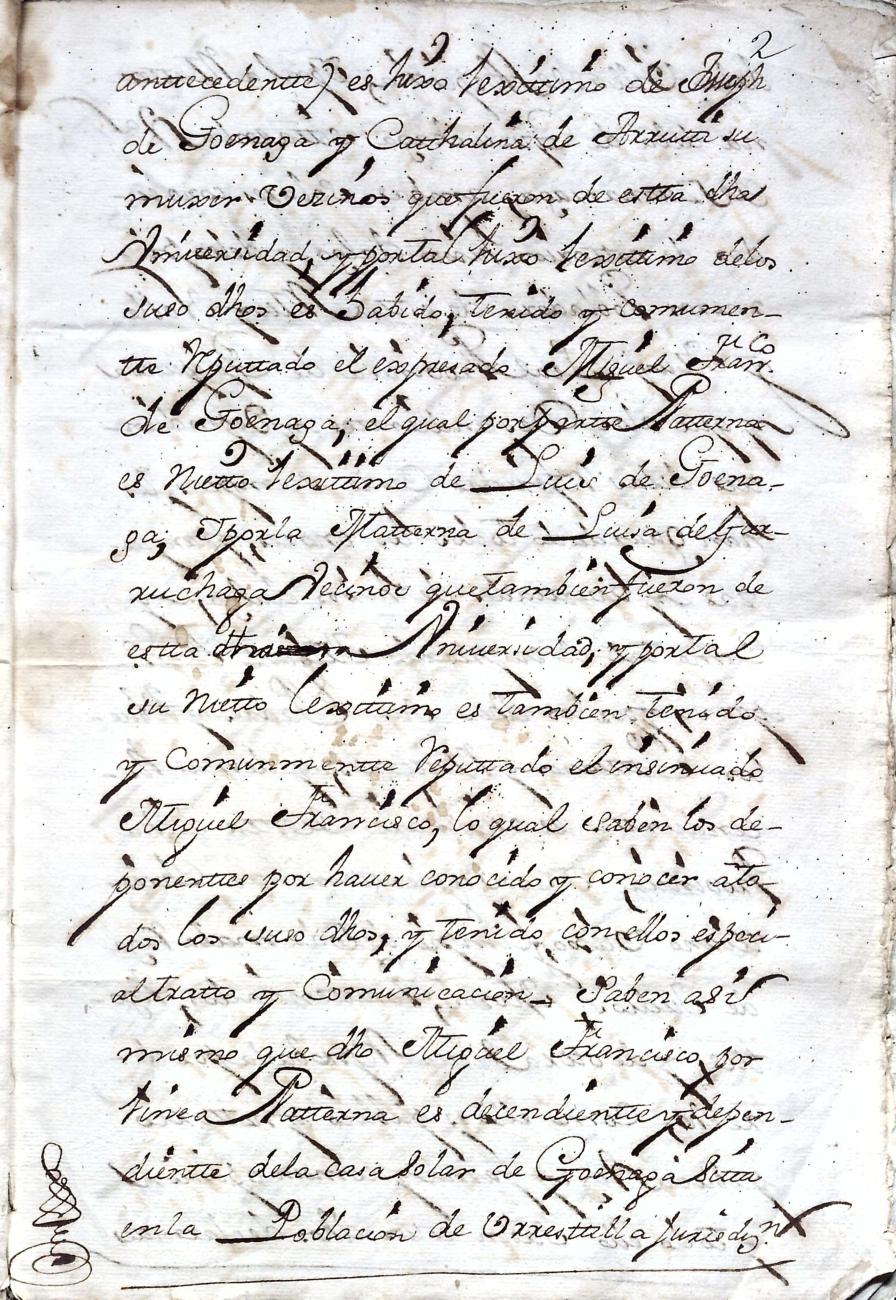 2
anttecedentte) es hixo lexittimo de Joseph
de Goenaga y Catthalina de Arruti su
muxer Vezinos que fueron de estta dha
Vniversidad, y por tal hixo lexittimo delos
suso dhos es Sabido, tenido y comumen-
tte Reputtado el expresado Miguel Franco
de Goenaga, el qual por partte Patterna
es Nietto lexittimo de Luis de Goena-
ga, Y por la Matterna de Luisa de Gur-
ruchaga Vecinos que tambien fueron de
estta dha Vniversidad, y por tal
su Nietto lexittimo es tambien tenido
y Comunmentte Reputtado el insinuado
Miguel Francisco, lo qual saben los de-
ponenttes por haver conocido y conocer ato-
dos los suso dhos, y tenido con ellos especi-
al tratto y Comunicacion_ Saben asi
mismo que dho Miguel Francisco por
linea Patterna es decendientte y depen-
dientte dela casa Solar de Goenaga Sitta
en la Poblacion de Vrresttilla Jurisdizn.